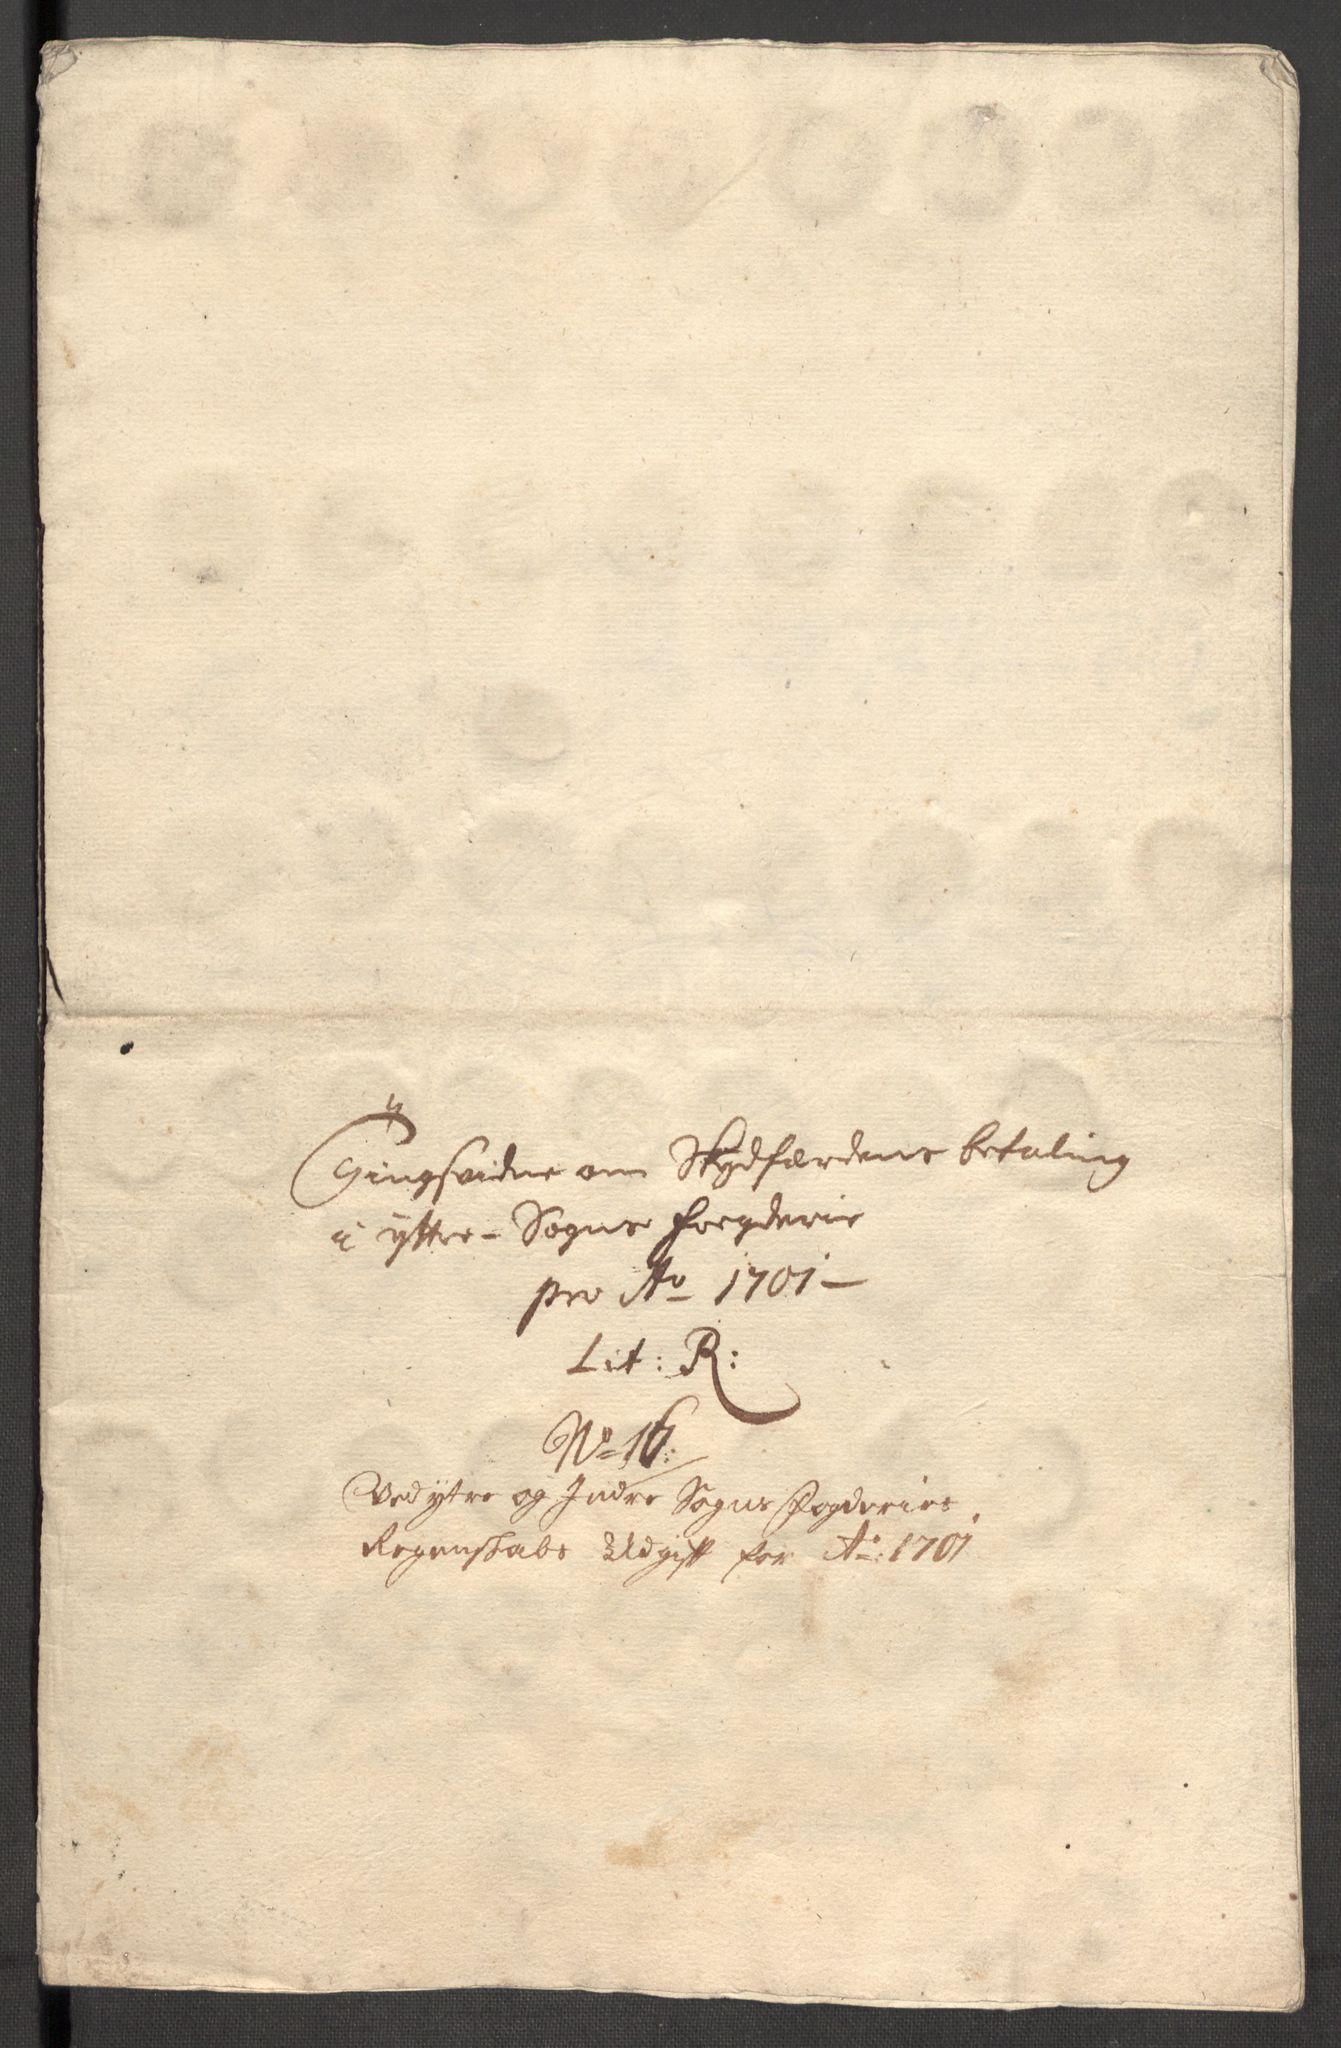 Tingsvidne om Skydsfærdens betaling
i ÿttre - Sogns Foegderie
pro Ao 1701 —
Lit: R:
No 16:
Ved ytre og Indre Sogns Fogderies
Regenskabs Udgift for Ao: 1701